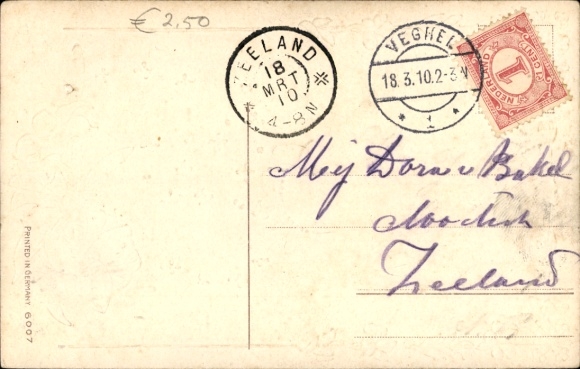 € 2,50
ZEELAND
18
MRT
10
4-8N
VEGHEL
18.3.10.2-3N
1
NEDERLAND
1
1 CENT 1
Mej Dora v Bakel
Zeeland
PRINTED IN GERMANY 6007